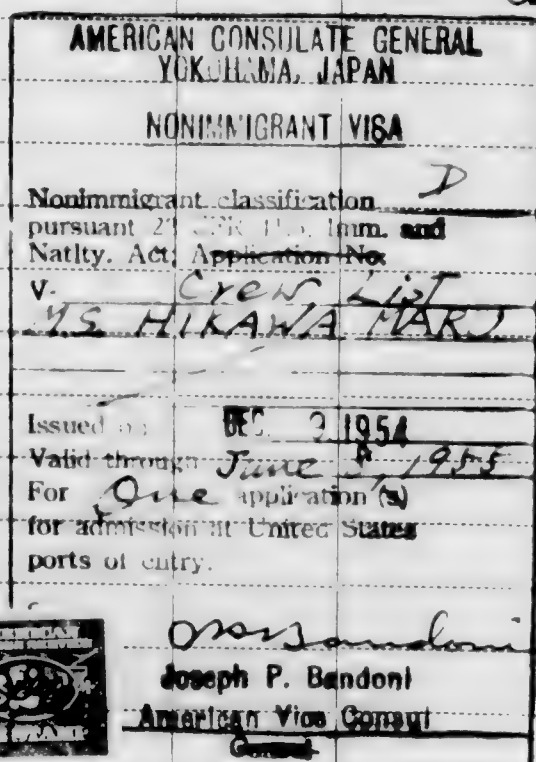 AMERICAN CONSULATE GENERAL
YOKOHAMA, JAPAN
NONIMMIGRANT VISA
Nonimmigrant classification D
pursuant 22 CFR Imm. and
Natlty. Act; Application No.
V- Crew List
MS HIKAWA MARU
Issued on DEC 9 1954
Valid through June 8, 1955
For One application (s)
for admission at United States
ports of entry.
Joseph P. Bandoni
American Vice Consul
General